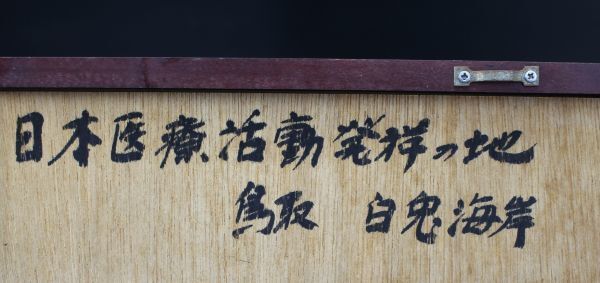 日本医療活動発祥の地
鳥取 白兎海岸